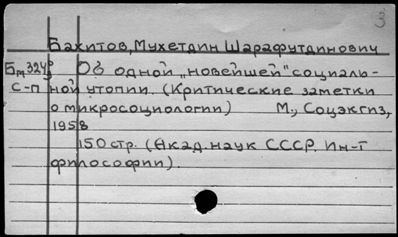 3
Бахитов, Мухетдин Шарафутдинович
Об одной „новейшей" социаль-
с-п ной утопии. (Критические заметки
о микросоциологии) М., Соцэкгиз,
1958
150 стр. (Акад. наук СССР. Ин-т
философии).